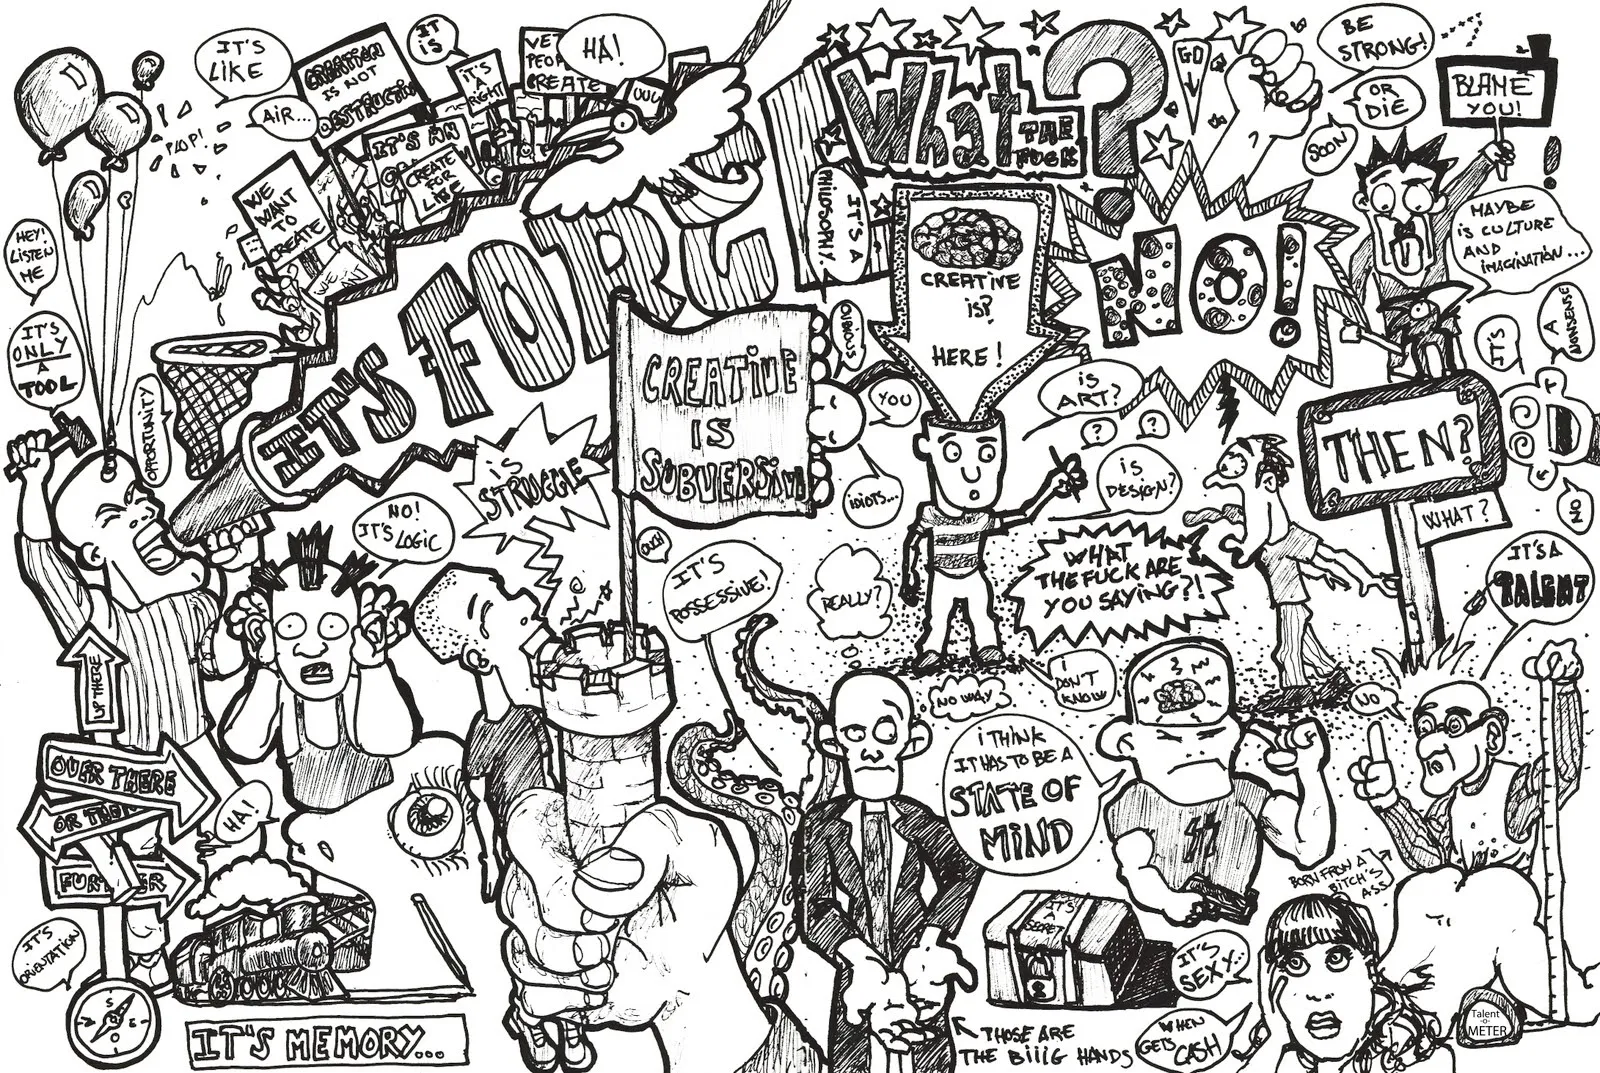 IT'S
LIKE
AIR...
POP!
HEY!
LISTEN
ME
IT'S
ONLY
A
TOOL
OPPORTUNITY
CREATION
IS NOT
DESTRUCTION
IT
IS
IT'S
RIGHT
HA!
UUU
CREATE
IT'S AN
CREATE
FOR
LIFE
WE
WANT
TO
CREATE
IT'S FOR
NO!
IT'S LOGIC
IS
STRUGGLE
CREATIVE
IS
SUBVERSIVE
DUBIOUS
YOU
IDIOTS...
OUCH!
IT'S
POSSESSIVE!
REALLY?
IT'S A
PHILOSOPHY.
What
THE
FUCK
?
CREATIVE
IS?
HERE!
GO
BE
STRONG!
OR
DIE
SOON
BLAME
YOU!
MAYBE
IS CULTURE
AND
IMAGINATION...
NO!
IS
ART?
?
?
IS
DESIGN?
WHAT
THE FUCK ARE
YOU SAYING?!
THEN?
WHAT?
IT'S
A
NONSENSE
NO
IT'S A
TALENT
NO
I
DON'T
KNOW
NO WAY
I THINK
IT HAS TO BE A
STATE OF
MIND
UP THERE
OVER THERE
OR THEN
HA!
IT'S
ORIENTATION
IT'S MEMORY...
IT'S
A
SECRET
THOSE ARE
THE BIIIG HANDS
IT'S
SEXY..
WHEN
GETS
CASH
BORN FROM A
BITCH'S
ASS
Talent
-O-
METER